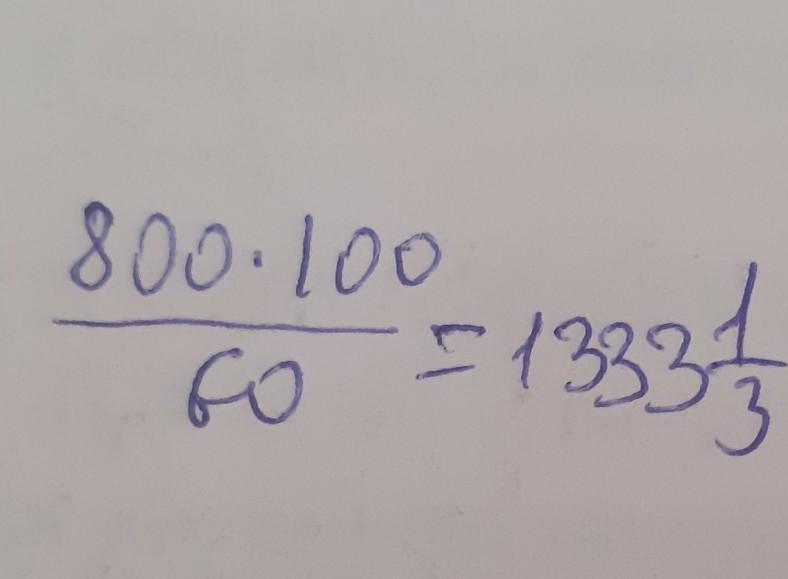 800·100
60
= 1333 1/3